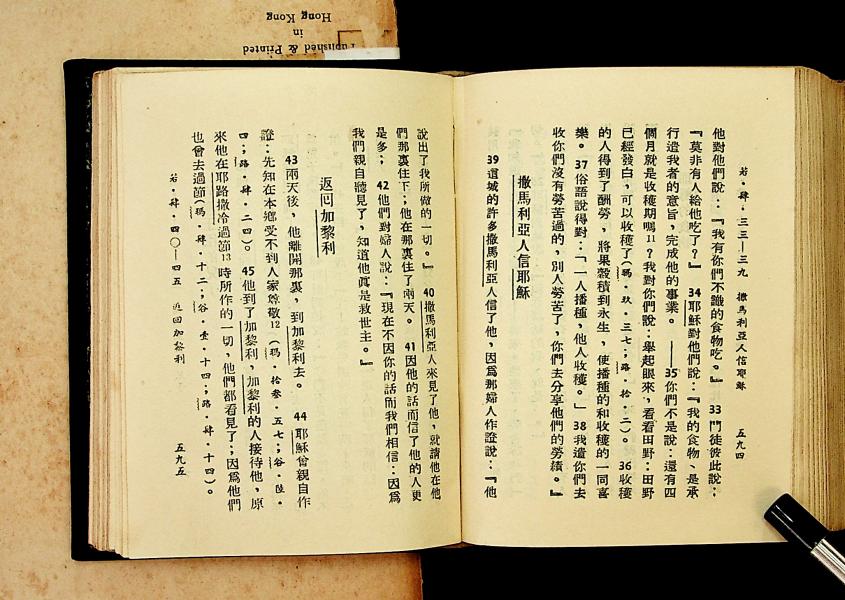 若．肆．三三—三九　撒馬利亞人信耶穌　五九四
他對他們說：『我有你們不識的食物吃。』 33 門徒彼此說：
『莫非有人給他吃了？』 34 耶穌對他們說：『我的食物、是承
行遣我者的意旨，完成他的事業。——35 你們不是說：還有四
個月就是收穫期嗎11？我對你們說：舉起眼來，看看田野：田野
已經發白，可以收穫了（瑪．玖．三七；路．拾．二）。 36 收穫
的人得到了酬勞，將果穀積到永生，使播種的和收穫的一同喜
樂。 37 俗語說得對：「一人播種，他人收穫。」 38 我遣你們去
收你們沒有勞苦過的，別人勞苦了，你們去分享他們的勞績。』
撒馬利亞人信耶穌
39 這城的許多撒馬利亞人信了他，因爲那婦人作證說：『他
說出了我所做的一切。』 40 撒馬利亞人來見了他，就請他在他
們那裏住下；他在那裏住了兩天。 41 因他的話而信了他的人更
是多； 42 他們對婦人說：『現在不因你的話而我們相信：因爲
我們親自聽見了，知道他眞是救世主。』
返回加黎利
43 兩天後，他離開那裏，到加黎利去。 44 耶穌曾親自作
證：先知在本鄉受不到人家尊敬12（瑪．拾叁．五七；谷．陸．
四；路．肆．二四）。 45 他到了加黎利，加黎利的人接待他，原
來他在耶路撒冷過節13時所作的一切，他們都看見了；因爲他們
也會去過節（瑪．肆．十二；谷．壹．十四；路．肆．十四）。
若．肆．四〇—四五　返回加黎利　五九五
Published & Printed
in
Hong Kong